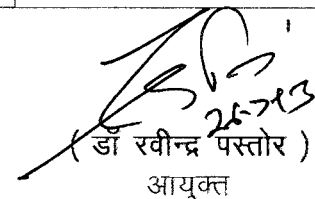 26-7-13
( डॉ रवीन्द्र पस्तोर )
आयुक्त